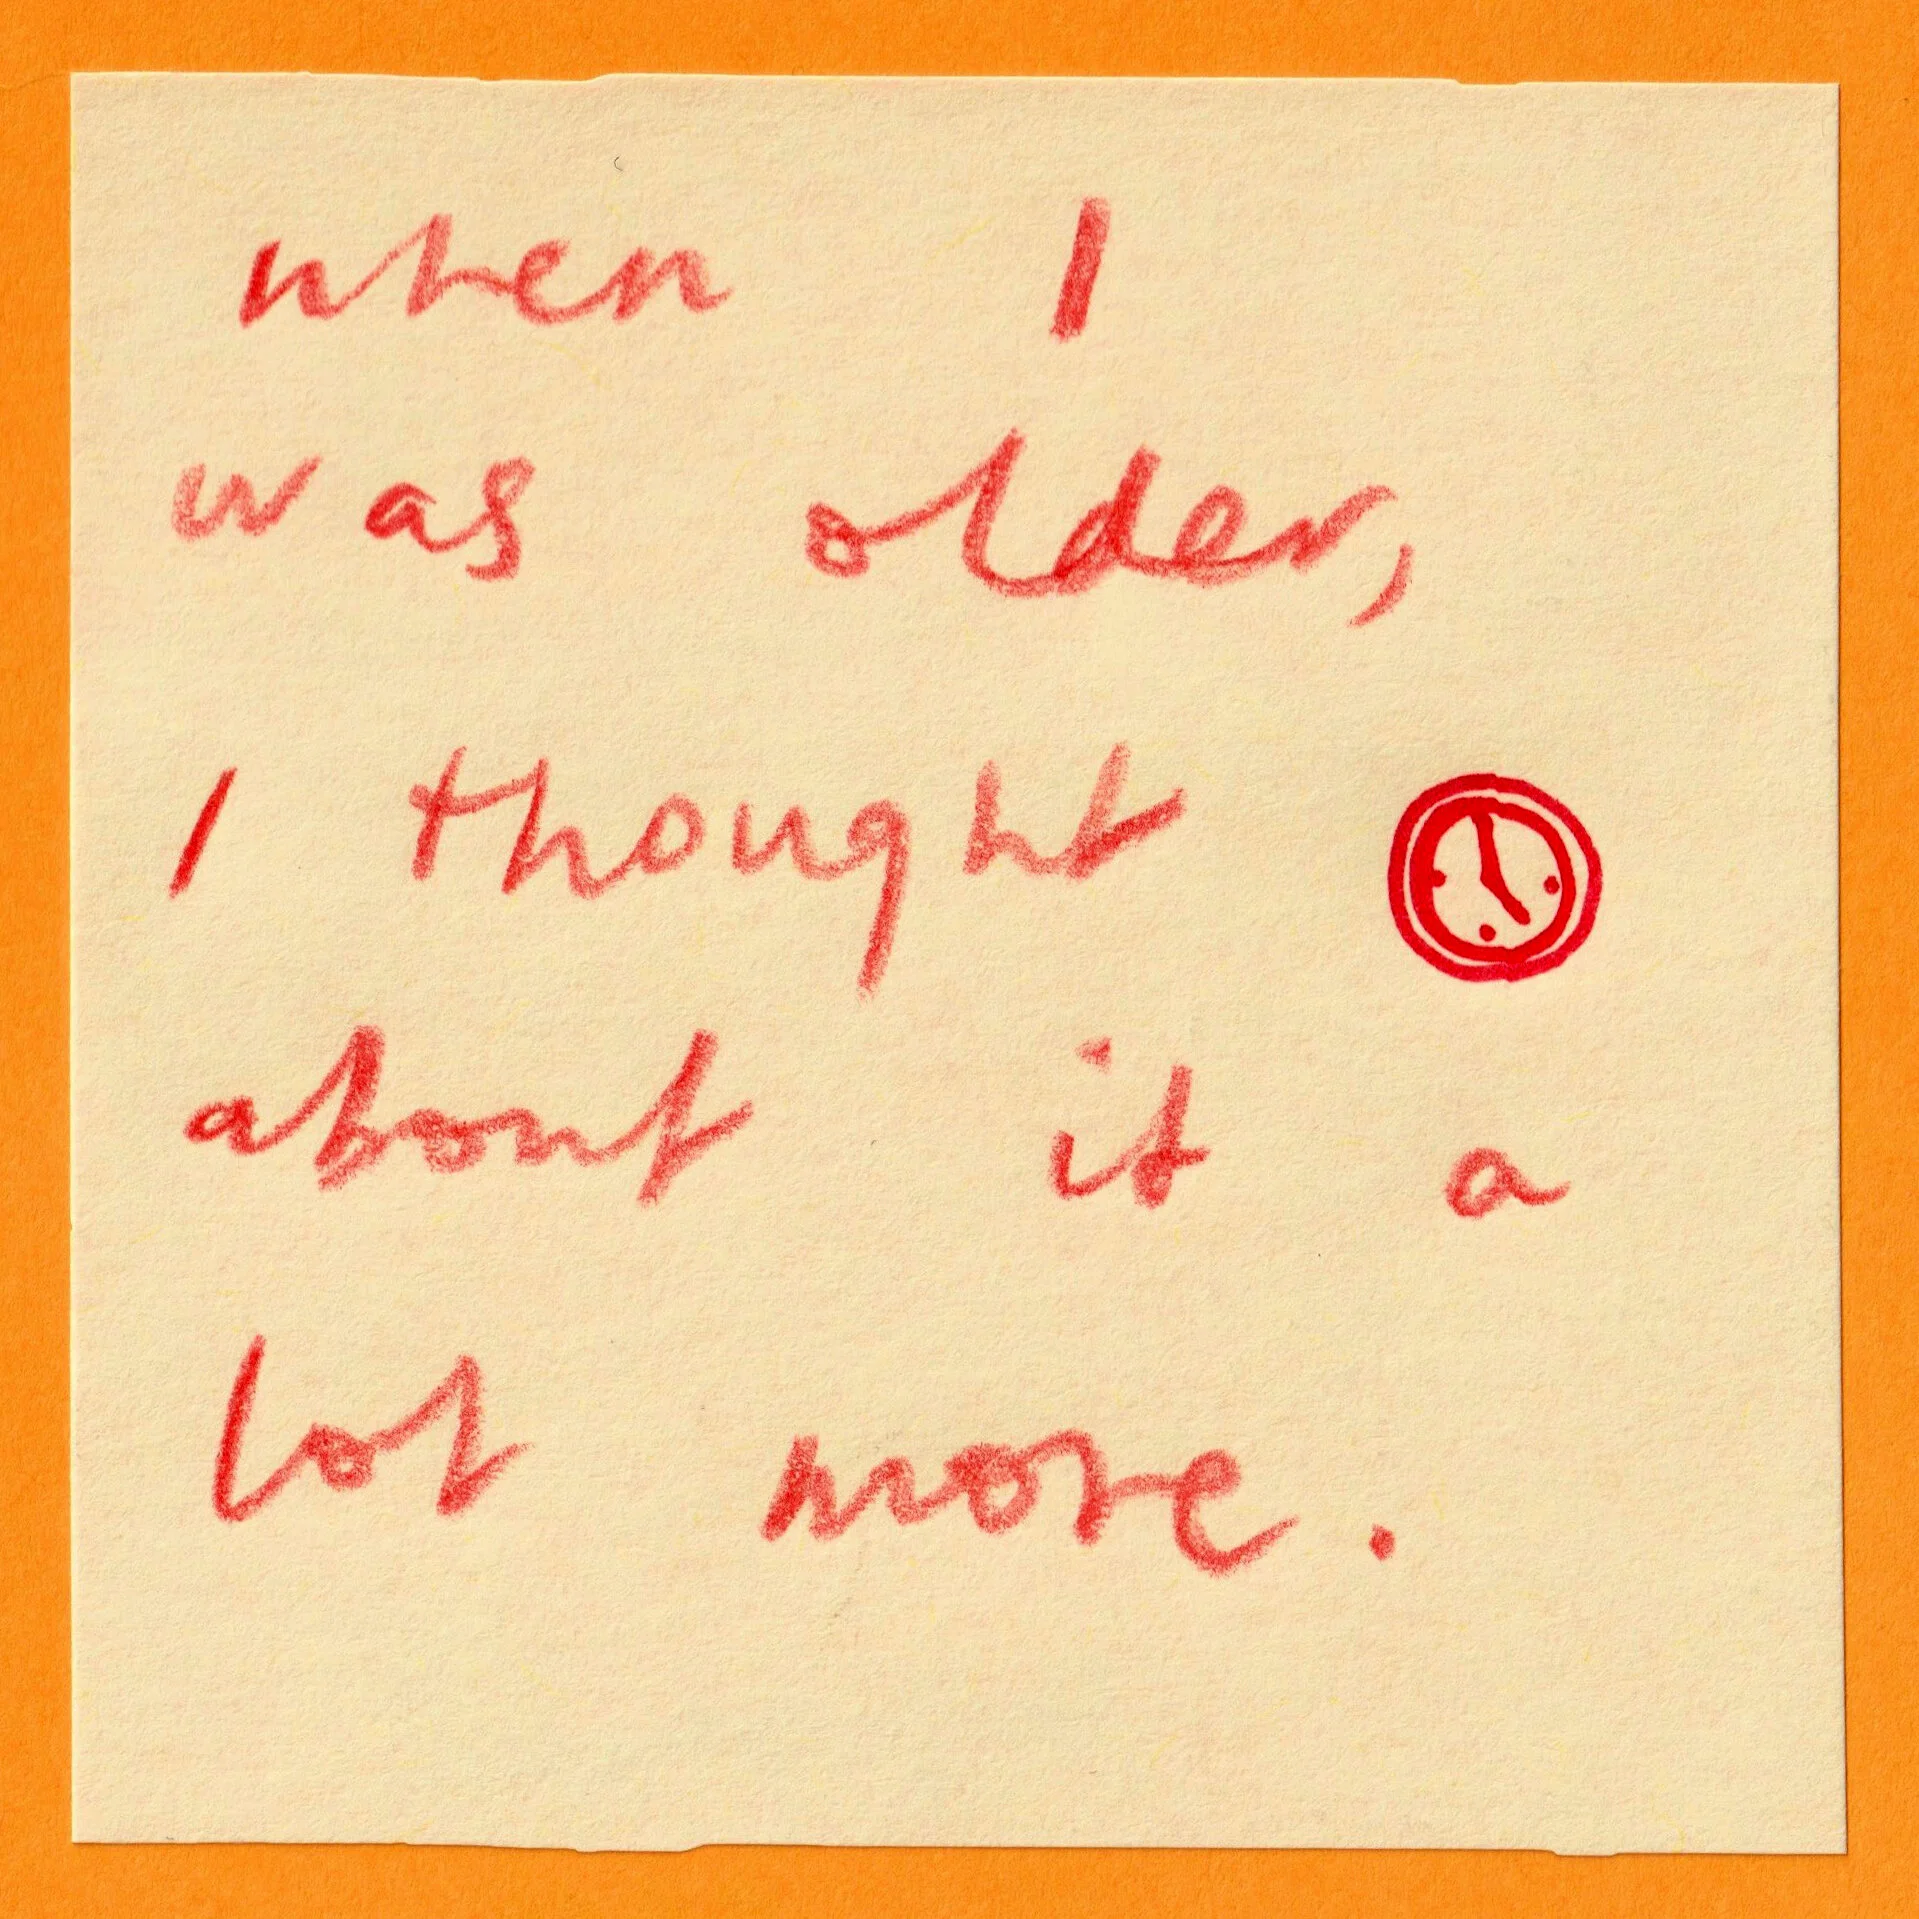 when I
was older,
I thought
about it a
lot more.